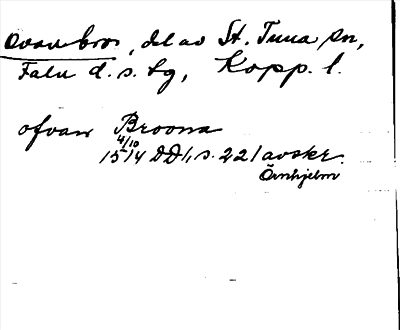 Ovanbro, del av St. Tuna sn,
Falu d. s. tg, Kopp. l.
ofvan Broona
4/10
1514 DD 1, s. 221 avskr.
Örnhjelm